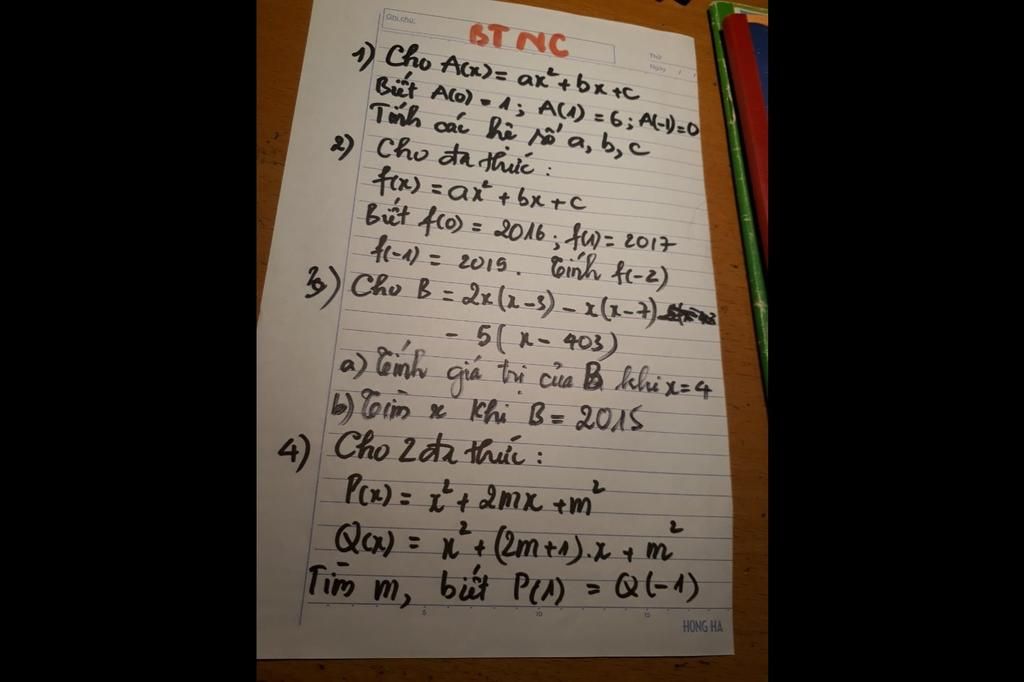 Ghi chú:
BT NC
Thứ
Ngày / /
1) Cho A(x) = ax² + bx + c
Biết A(0) = 1 ; A(1) = 6 ; A(-1) = 0
Tính các hệ số a, b, c
2) Cho đa thức :
f(x) = ax² + bx + c
Biết f(0) = 2016 ; f(1) = 2017
f(-1) = 2015. Tính f(-2)
3) Cho B = 2x(x-3) - x(x-7)
- 5( x - 403)
a) Tính giá trị của B khi x = 4
b) Tìm x khi B = 2015
4) Cho 2 đa thức :
P(x) = x² + 2mx + m²
Q(x) = x² + (2m+1).x + m²
Tìm m, biết P(1) = Q(-1)
5 10 15
HONG HA